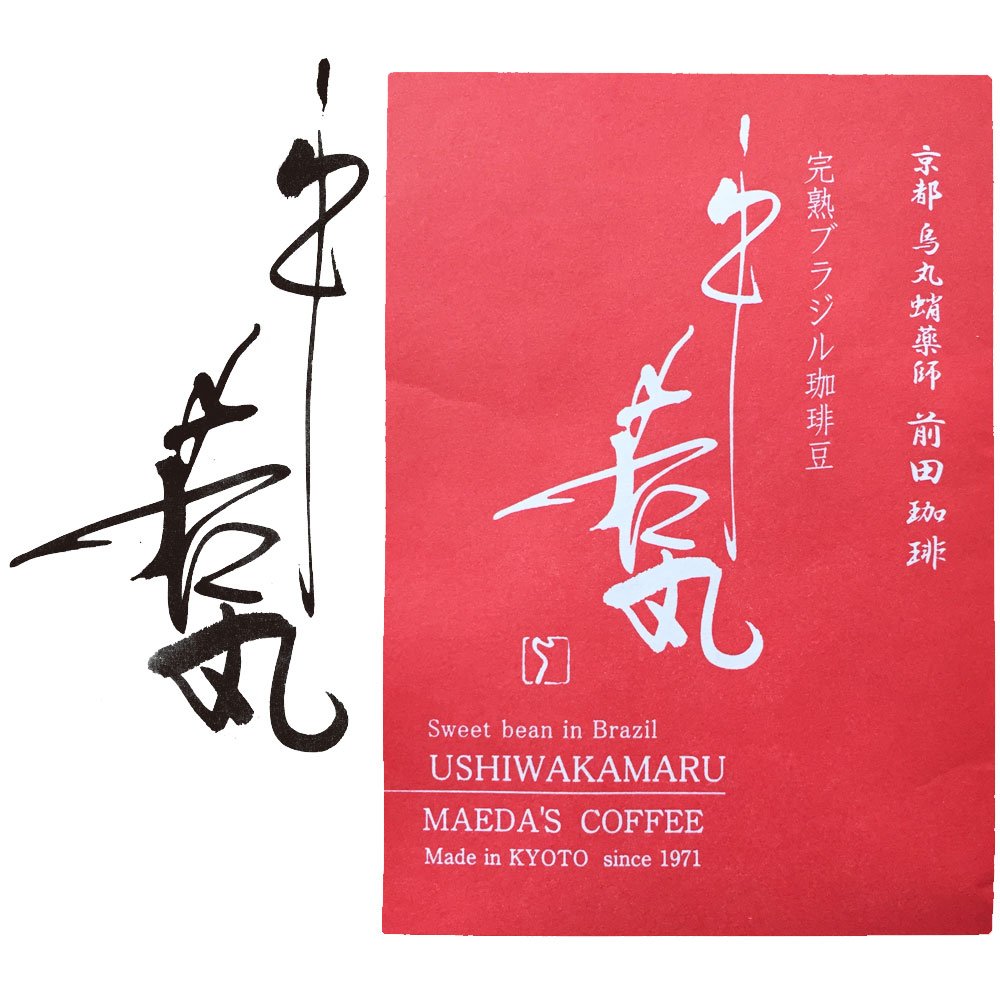 牛若丸
京都 烏丸蛸薬師 前田珈琲
完熟ブラジル珈琲豆
牛若丸
Sweet bean in Brazil
USHIWAKAMARU
MAEDA'S COFFEE
Made in KYOTO since 1971